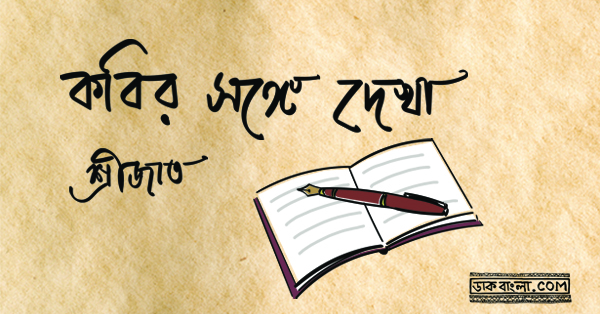 কবির সঙ্গে দেখা
শ্রীজাত
ডাকবাংলা.COM